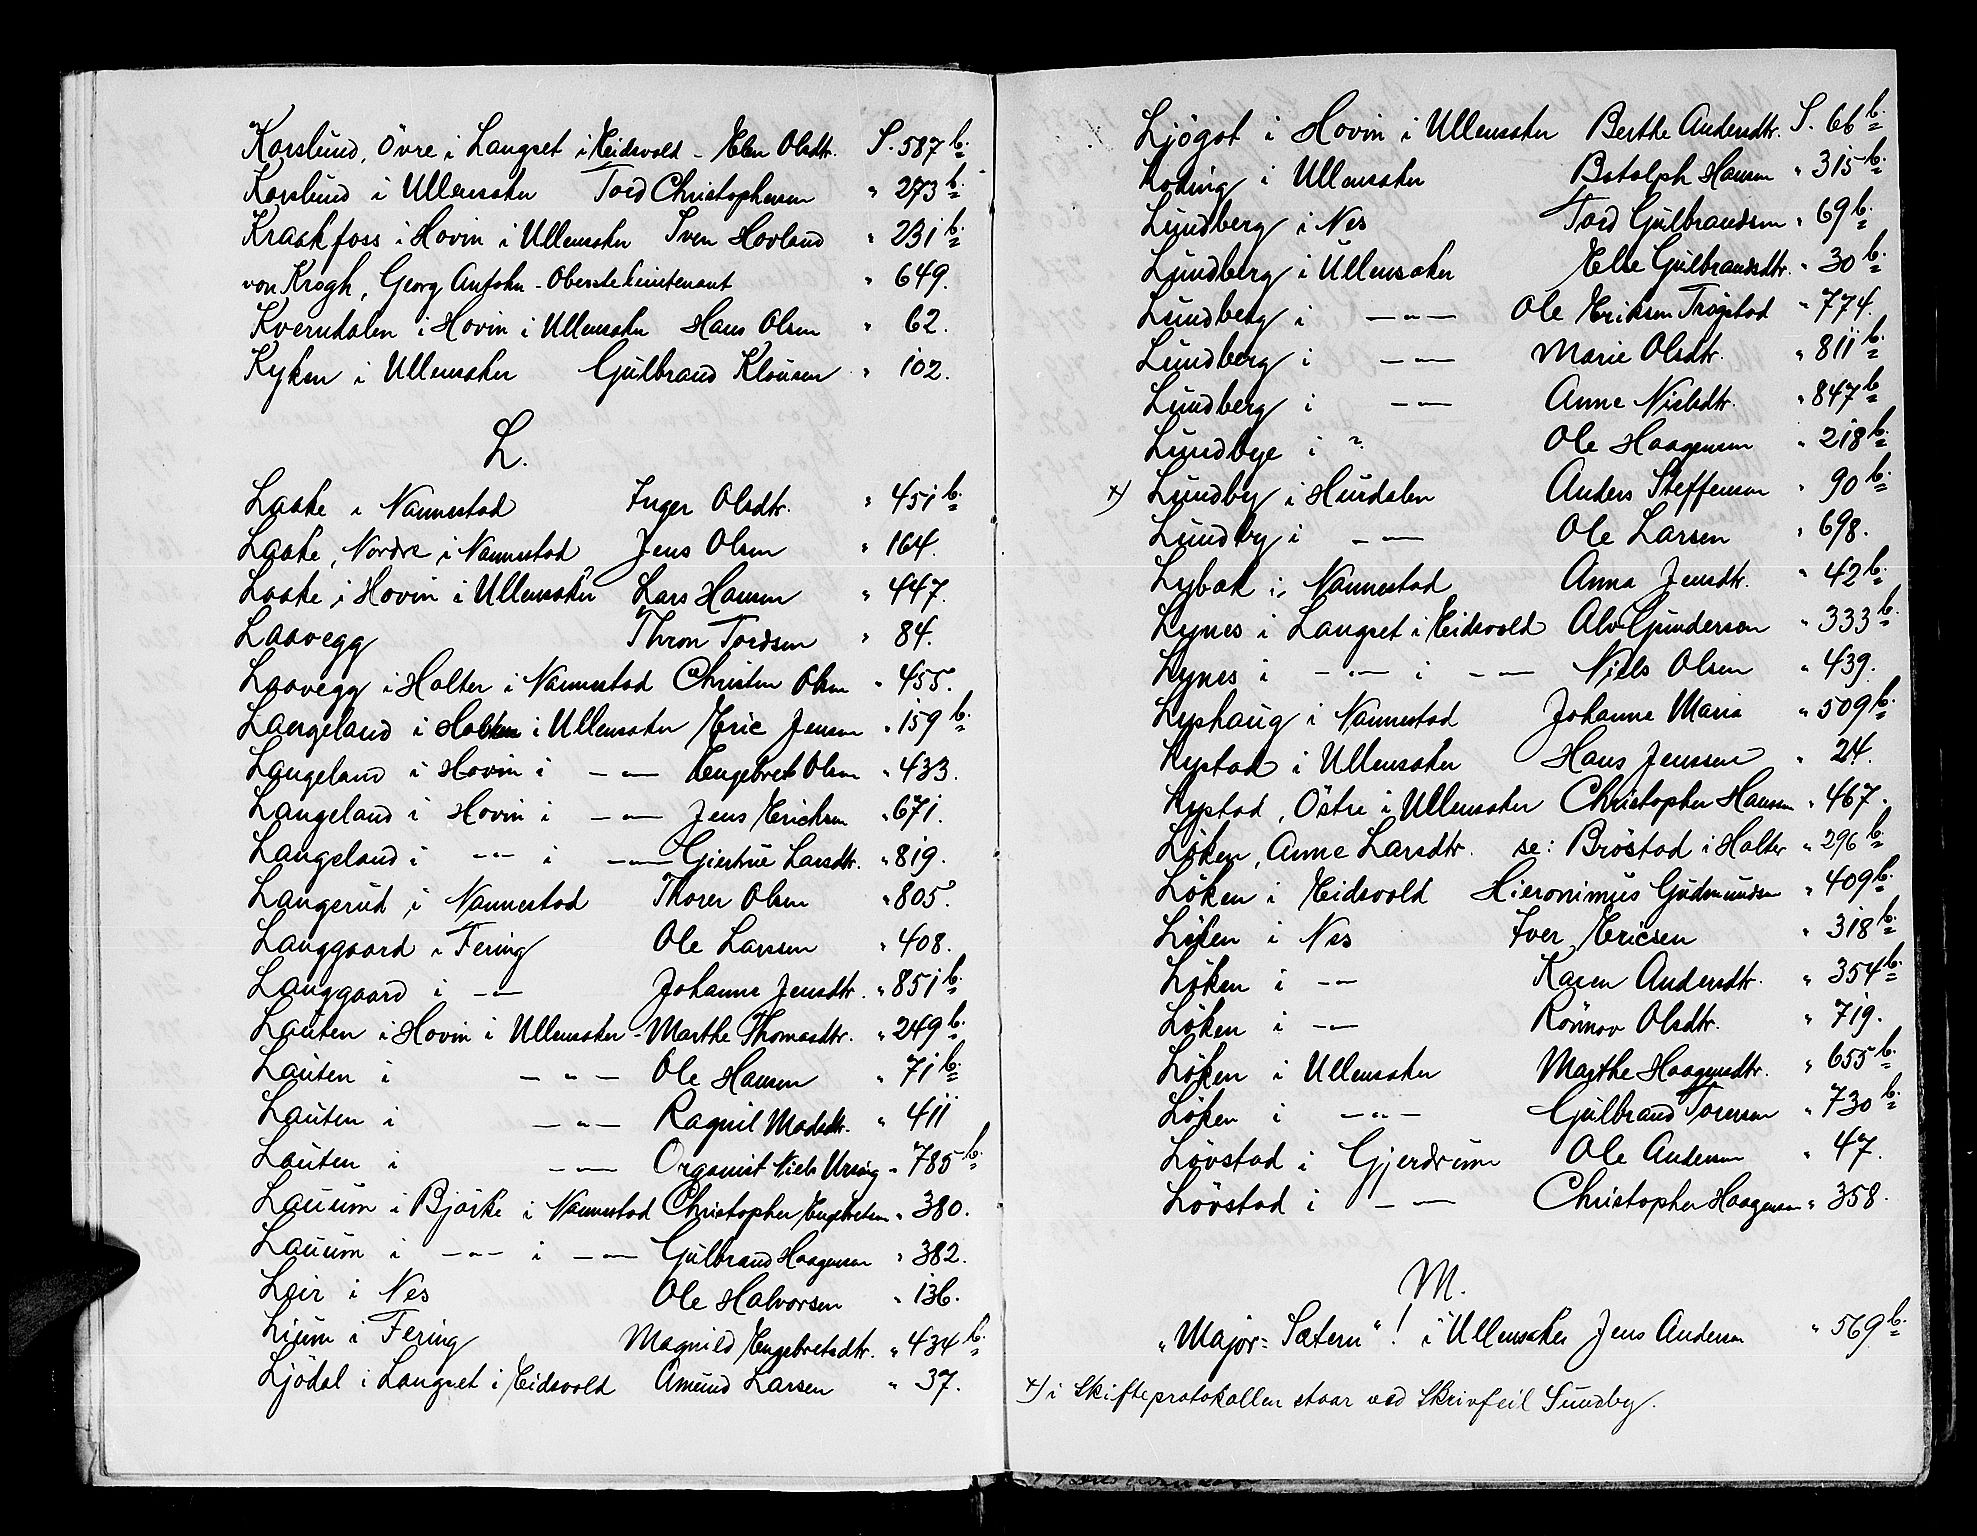 Korslund, Övre i Langset i Eidsvold - Elen Olsdtr. S. 587 b.
Korslund i Ullensaker Tord Christophersen " 273 b.
Kraakfoss i Hovin i Ullensaker Iven Hovland " 231 b.
von Krogh, Georg Anton - Oberstelieutenant " 649.
Kverndalen i Hovin i Ullensaker Hans Olsen " 62.
Kyken i Ullensaker Gulbrand Klousen " 102.
L.
Laake i Nannestad Inger Olsdtr. " 451 b.
Laake, Nordre i Nannestad Jens Olsen " 164.
Laake i Hovin i Ullensaker Lars Hansen " 447.
Laavegg Thron Tordsen " 84.
Laavegg i Holter i Nannestad Christen Olsen " 455.
Langeland i Hovin i Ullensaker Eric Jensen " 159 b.
Langeland i Hovin i — " — Engebret Olsen " 433.
Langeland i Hovin i — " — Jens Ericksen " 671.
Langeland i — " — i — " — Giertrue Larsdtr. " 819.
Langerud i Nannestad Thorer Olsen " 805.
Langgaard i Fering Ole Larssen " 408.
Langgaard i — " — Johanne Jensdtr. " 851 b.
Lauten i Hovin i Ullensaker - Marthe Thomasdtr. " 249 b.
Lauten i — " — Ole Hansen " 71 b.
Lauten i — " — Ragnil Madsdtr. " 411
Lauten i — " — Organist Niels Ursing " 785 b.
Lauum i Bjørke i Nannestad Christopher Engebretsen " 380.
Lauum i — " — i — " — Gulbrand Haagensen " 382.
Leir i Nes Ole Halvorsen " 136.
Lium i Fering Magnild Engebretsdtr. " 434 b.
Ljödal i Langset i Eidsvold Amund Larsen " 37.
Ljögot i Hovin i Ullensaker Berthe Andersdtr. S. 66 b.
Loding i Ullensaker Botolph Hansen " 315 b.
Lundberg i Nes Tord Gulbrandsen " 69 b.
Lundberg i Ullensaker Else Gulbrandsdtr. " 30 b.
Lundberg i — " — Ole Eriksen Trøgstad " 774.
Lundberg i — " — Marie Olsdtr. " 811 b.
Lundberg i — " — Anne Nielsdtr. " 847 b.
Lundbye i ? Ole Haagensen " 218 b.
x) Lundby i Hurdalen Anders Steffensen " 90 b.
Lundby i — " — Ole Larsen " 698.
Lybak i Nannestad Anna Jensdtr. " 42 b.
Lynes i Langset i Eidsvold Alv Gunderson " 333 b.
Lynes i — " — i — " — Niels Olsen " 439.
Lyshaug i Nannestad Johanne Maria " 509 b.
Lystad i Ullensaker Hans Jenssen " 24.
Lystad, Östre i Ullensaker Christopher Hansen " 467.
Løken, Anne Larsdtr. se: Bröstad i Holter " 296 b.
Løken i Eidsvold Hieronimus Gudmundsen " 409 b.
Løken i Nes Iver Ericsen " 318 b.
Løken i — " — Karen Andersdtr. " 354 b.
Løken i — " — Rönnov Olsdtr. " 719.
Løken i Ullensaker Marthe Haagensdtr. " 655 b.
Løken i — " — Gulbrand Torersen " 730 b.
Lövstad i Gjerdrum Ole Andersen " 47.
Lövstad i — " — Christopher Haagensen " 358.
M.
"Major-Sætern"! i Ullensaker Jens Andersen " 569 b.
x) i Skifteprotokollen staar ved Skrivfeil Sundby.